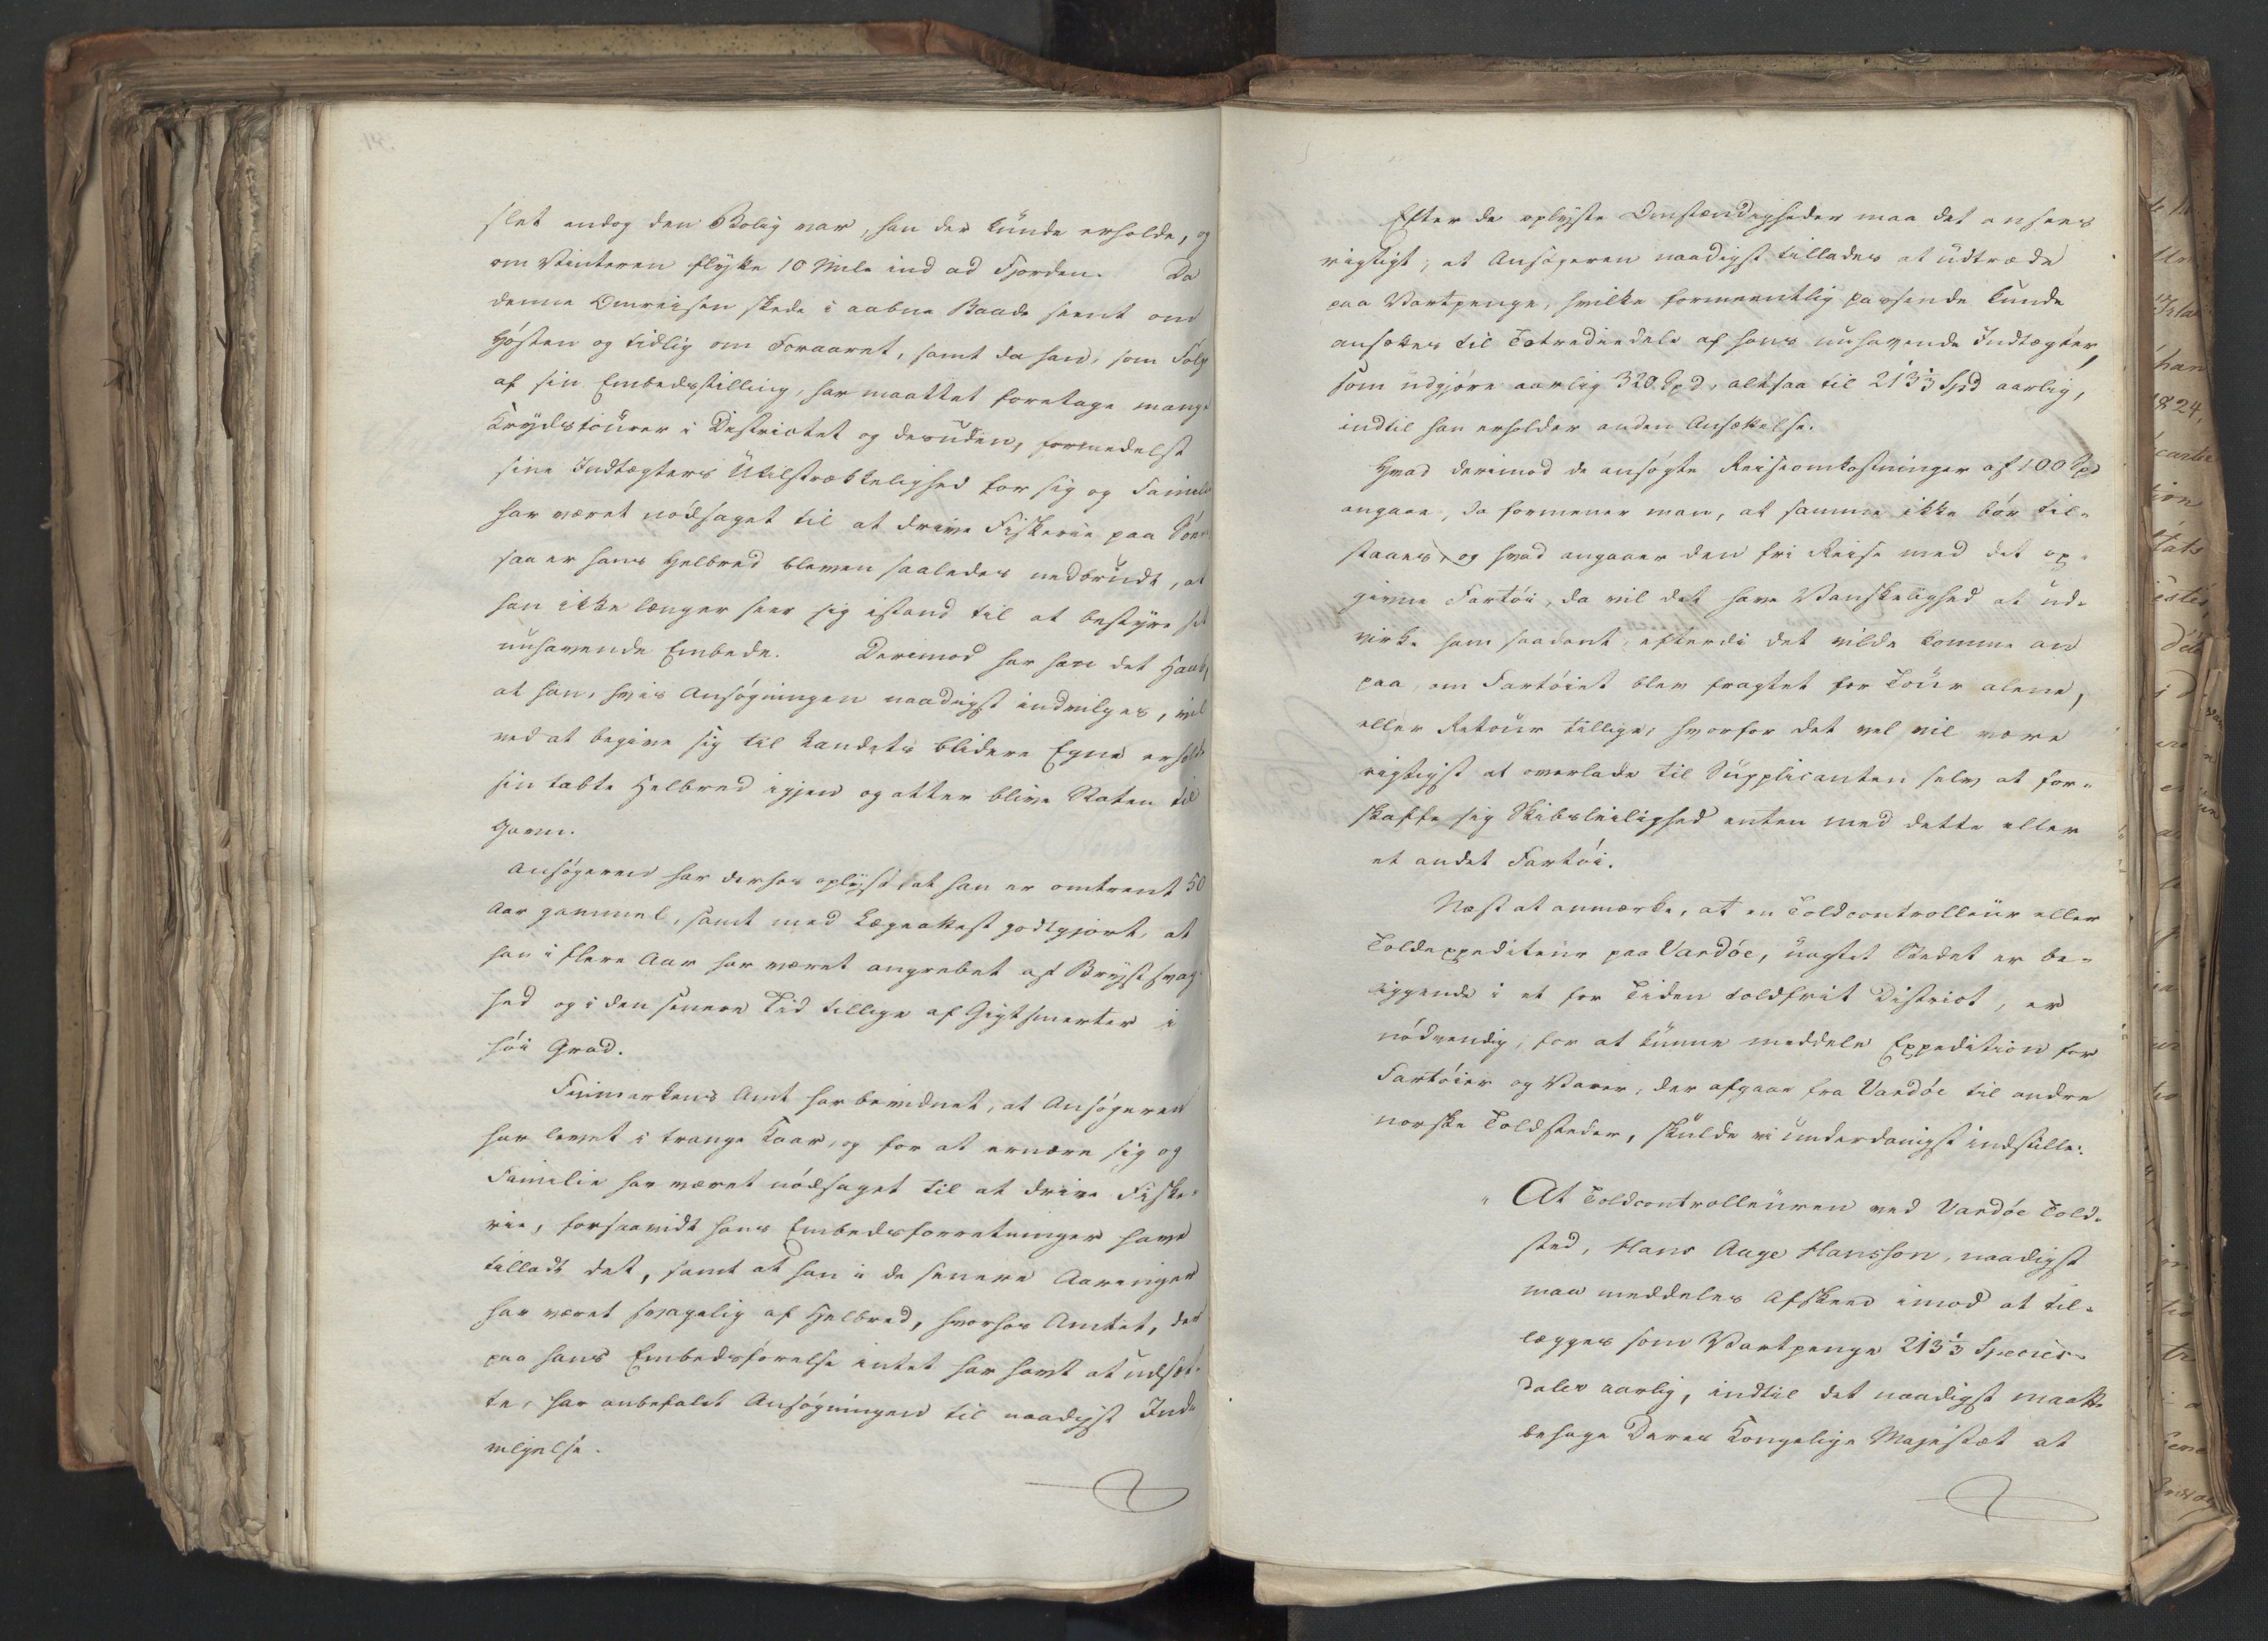 slet endog den Bolig var, han der kunde erholde, og
om Vinteren flytte 10 Mile ind ad Fjorden. Da
denne Omreisen skede i aabne Baade seent om
Hösten og tidlig om Foraaret, samt da han, som Følge
af sin Embedsstilling, har maattet foretage mange
Krydstourer i Districtet og desuden, formedelst
sine Indtægters Utilstrækkelighed for sig og Familie
har været nödsaget til at drive Fiskerie paa Söen,
saa er hans Helbred bleven saaledes nedbrudt, at
han ikke længer seer sig istand til at bestyre sit
nuhavende Embede. Derimod har han det Haab,
at han, hvis Ansögningen naadigst indvilges, vil
ved at begive sig til Landets blidere Egne erholde
sin tabte Helbred igjen og atter blive Staten til
Gavn.
Ansögeren har derhos oplyst at han er omtrent 50
Aar gammel, samt med Lægeattest godtgjort, at
han i flere Aar har været angrebet af Brystsvag-
hed og i den senere Tid tillige af Gigtsmerter i
höi Grad.
Finmarkens Amt har bevidnet, at Ansögeren
har levet i trange Kaar, og for at ernære sig og
Familie har været nödsaget til at drive Fiske-
rie, forsaavidt hans Embedsforretninger have
tilladt det, samt at han i de senere Aaringer
har været svagelig af Helbred, hvorhos Amtet, der
paa hans Embedsförelse intet har havt at udsæt-
te, har anbefalet Ansögningen til naadigst Ind-
vilgelse.
Efter de oplyste Omstændigheder maa det ansees
rigtigt, at Ansögeren naadigst tillades at udtræde
paa Vartpenge, hvilke formeentlig passende kunde
ansættes til Totrediedele af hans nuhavende Indtægter,
som udgjöre aarlig 320 Spd, altsaa til 213⅓ Spd aarlig,
indtil han erholder anden Ansættelse.
Hvad derimod de ansögte Reiseomkostninger af 100 Spd
angaae, da formener man, at samme ikke bör til-
staaes, og hvad angaaer den fri Reise med det op-
givne Fartöi, da vil det have Vanskelighed at ud-
virke ham saadant, efterdi det vilde komme an
paa, om Fartöiet blev fragtet for Tour alene,
eller Retour tillige, hvorfor det vel vil være
rigtigst at overlade til Supplicanten selv at for-
skaffe sig Skibsleilighed enten med dette eller
et andet Fartöi.
Næst at anmærke, at en Toldcontrolleur eller
Toldexpediteur paa Vardöe, uagtet Stedet er be-
liggende i et for Tiden toldfrit District, er
nödvendig, for at kunne meddele Expedition for
Fartöier og Varer, der afgaae fra Vardöe til andre
norske Toldsteder, skulde vi underdanigst indstille:
" At Toldcontrolleuren ved Vardöe Told-
sted, Hans Aage Hansson, naadigst
maa meddeles Afskeed imod at til-
lægges som Vartpenge 213⅓ Species-
daler aarlig, indtil det naadigst maatte
behage Deres Kongelige Majestæt at